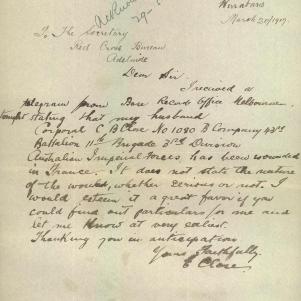 Wirrabara
March 20/1917
Ackno
29-
To The Secretary
Red Cross Bureau
Adelaide
Dear Sir.
I received a
telegram from Base Records Office Melbourne.
tonight stating that my husband
Corporal C B Close No 1080 B Company 43rd
Battalion 11th Brigade 3rd Division
Australian Imperial Forces has been wounded
in France. It does not state the nature
of the wound, whether serious or not. I
would esteem it a great favor if you
could find out particulars for me and
let me know at very earliest.
Thanking you in anticipation
Yours faithfully.
E Close